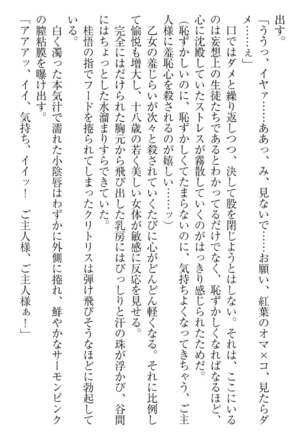 出す。
「ううっ、イヤァ……ああっ　み、見ないで……お願い、紅葉のオマ×コ、見たらダ
メ……ぇ」
　口ではダメと繰り返しつつ、決して股を閉じようとはしない。それは、ここにいる
のは妄想上の生徒たちであるとわかってるだけでなく、恥ずかしくなればなるほど、
心に沈殿していたストレスが霧散していくのがはっきり感じられたためだ。
（恥ずかしいのに、恥ずかしくてたまらないのに、気持ちよくなってきちゃう、ご主
人様に羞恥心を殺されるのが嬉しい……ッ）
　乙女の羞じらいが次々と殺されていくたびに心がどんどん軽くなる。それに比例し
て愉悦も増大し、十八歳の若く美しい女体が敏感に反応を見せる。
　完全にはだけられた胸元から飛び出した乳房にはびっしりと汗の珠が浮かび、谷間
にはちょっとした水溜まりすらできていた。
　桂悟の指でフードを捲られてしまったクリトリスは弾け飛びそうなほどに勃起して
いる。
　白く濁った本気汁で濡れた小陰唇はわずかに外側に捲れ、鮮やかなサーモンピンク
の膣粘膜を曝け出す。
「アアアッ、イイ、気持ち、イイッ！　ご主人様、ご主人様ぁ！」